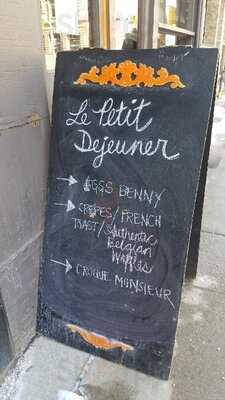 Le Petit
Dejeuner
→ EGGS BENNY
→ CREPES/FRENCH
TOAST/Authentic
Belgian
Waffles
→ CROQUE MONSIEUR